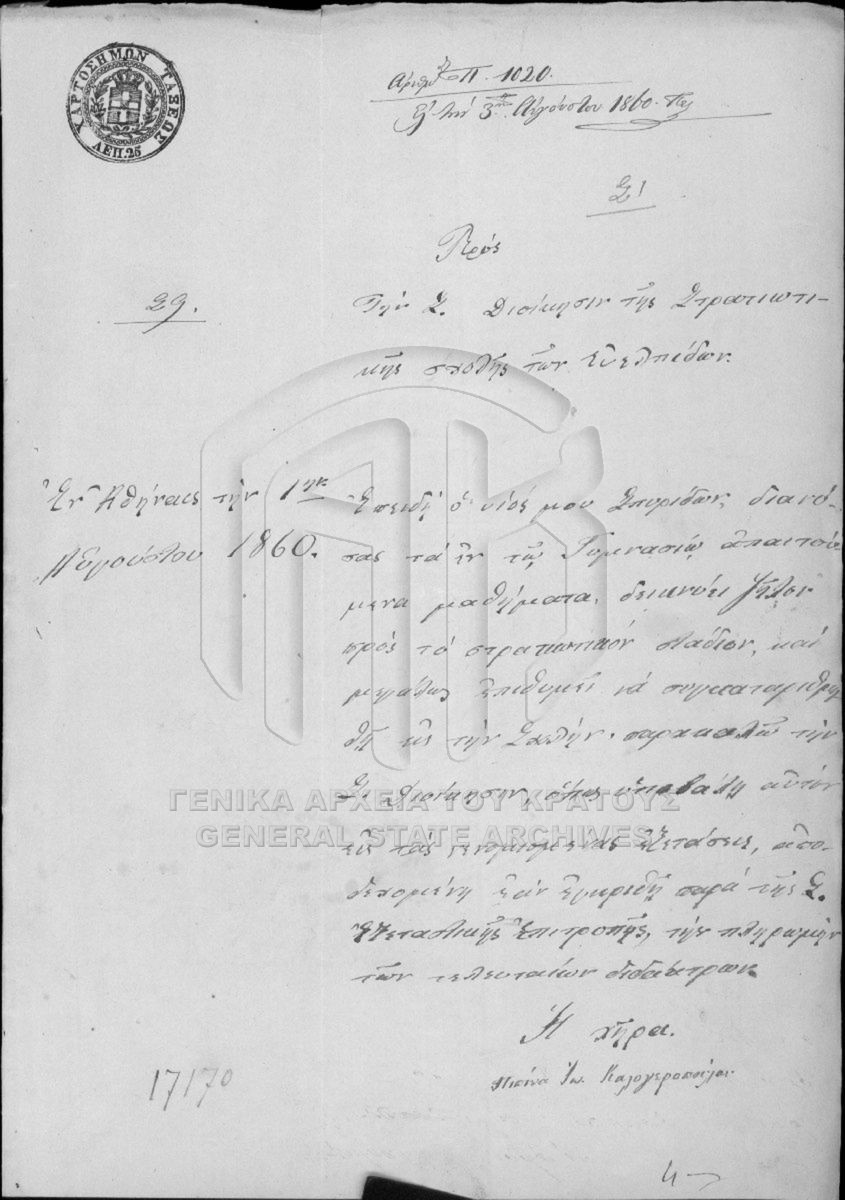 ΧΑΡΤΟΣΗΜΩΝ ΤΑΞΕΩΣ
ΛΕΠ. 25
Αριθ. Π. 1020.
τήν 3ην Αὐγούστου 1860.
Πρός
Τήν Σ. Διοίκησιν τῆς Στρατιωτι-
κῆς σχολῆς τῶν Εὐελπίδων.
Ἐν Ἀθήναις τήν 1ην
Αὐγούστου 1860.
Ἐπειδή ὁ υἱός μου Σπυρίδων, διανύ-
σας τά ἐν τῷ Γυμνασίῳ ἀπαιτού
μενα μαθήματα, δεικνύει ζῆλον
πρός τό στρατιωτικόν στάδιον, καί
μεγάλως ἐπιθυμεῖ νά συγκαταριθμη
θῇ εἰς τήν Σχολήν· παρακαλῶ τήν
Σ. Διοίκησιν, ὅπως ὑποβάλῃ αὐτόν
εἰς τάς νενομισμένας ἐξετάσεις, ἀπο-
δεχομένη ἐάν ἐγκριθῇ παρά τῆς Σ.
Ἐξεταστικῆς Ἐπιτροπῆς, τήν πληρωμήν
τῶν τελευταίων διδάκτρων.
Ἡ χῆρα.
Ἰω. Καλογεροπούλου
17170
ΓΕΝΙΚΑ ΑΡΧΕΙΑ ΤΟΥ ΚΡΑΤΟΥΣ
GENERAL STATE ARCHIVES